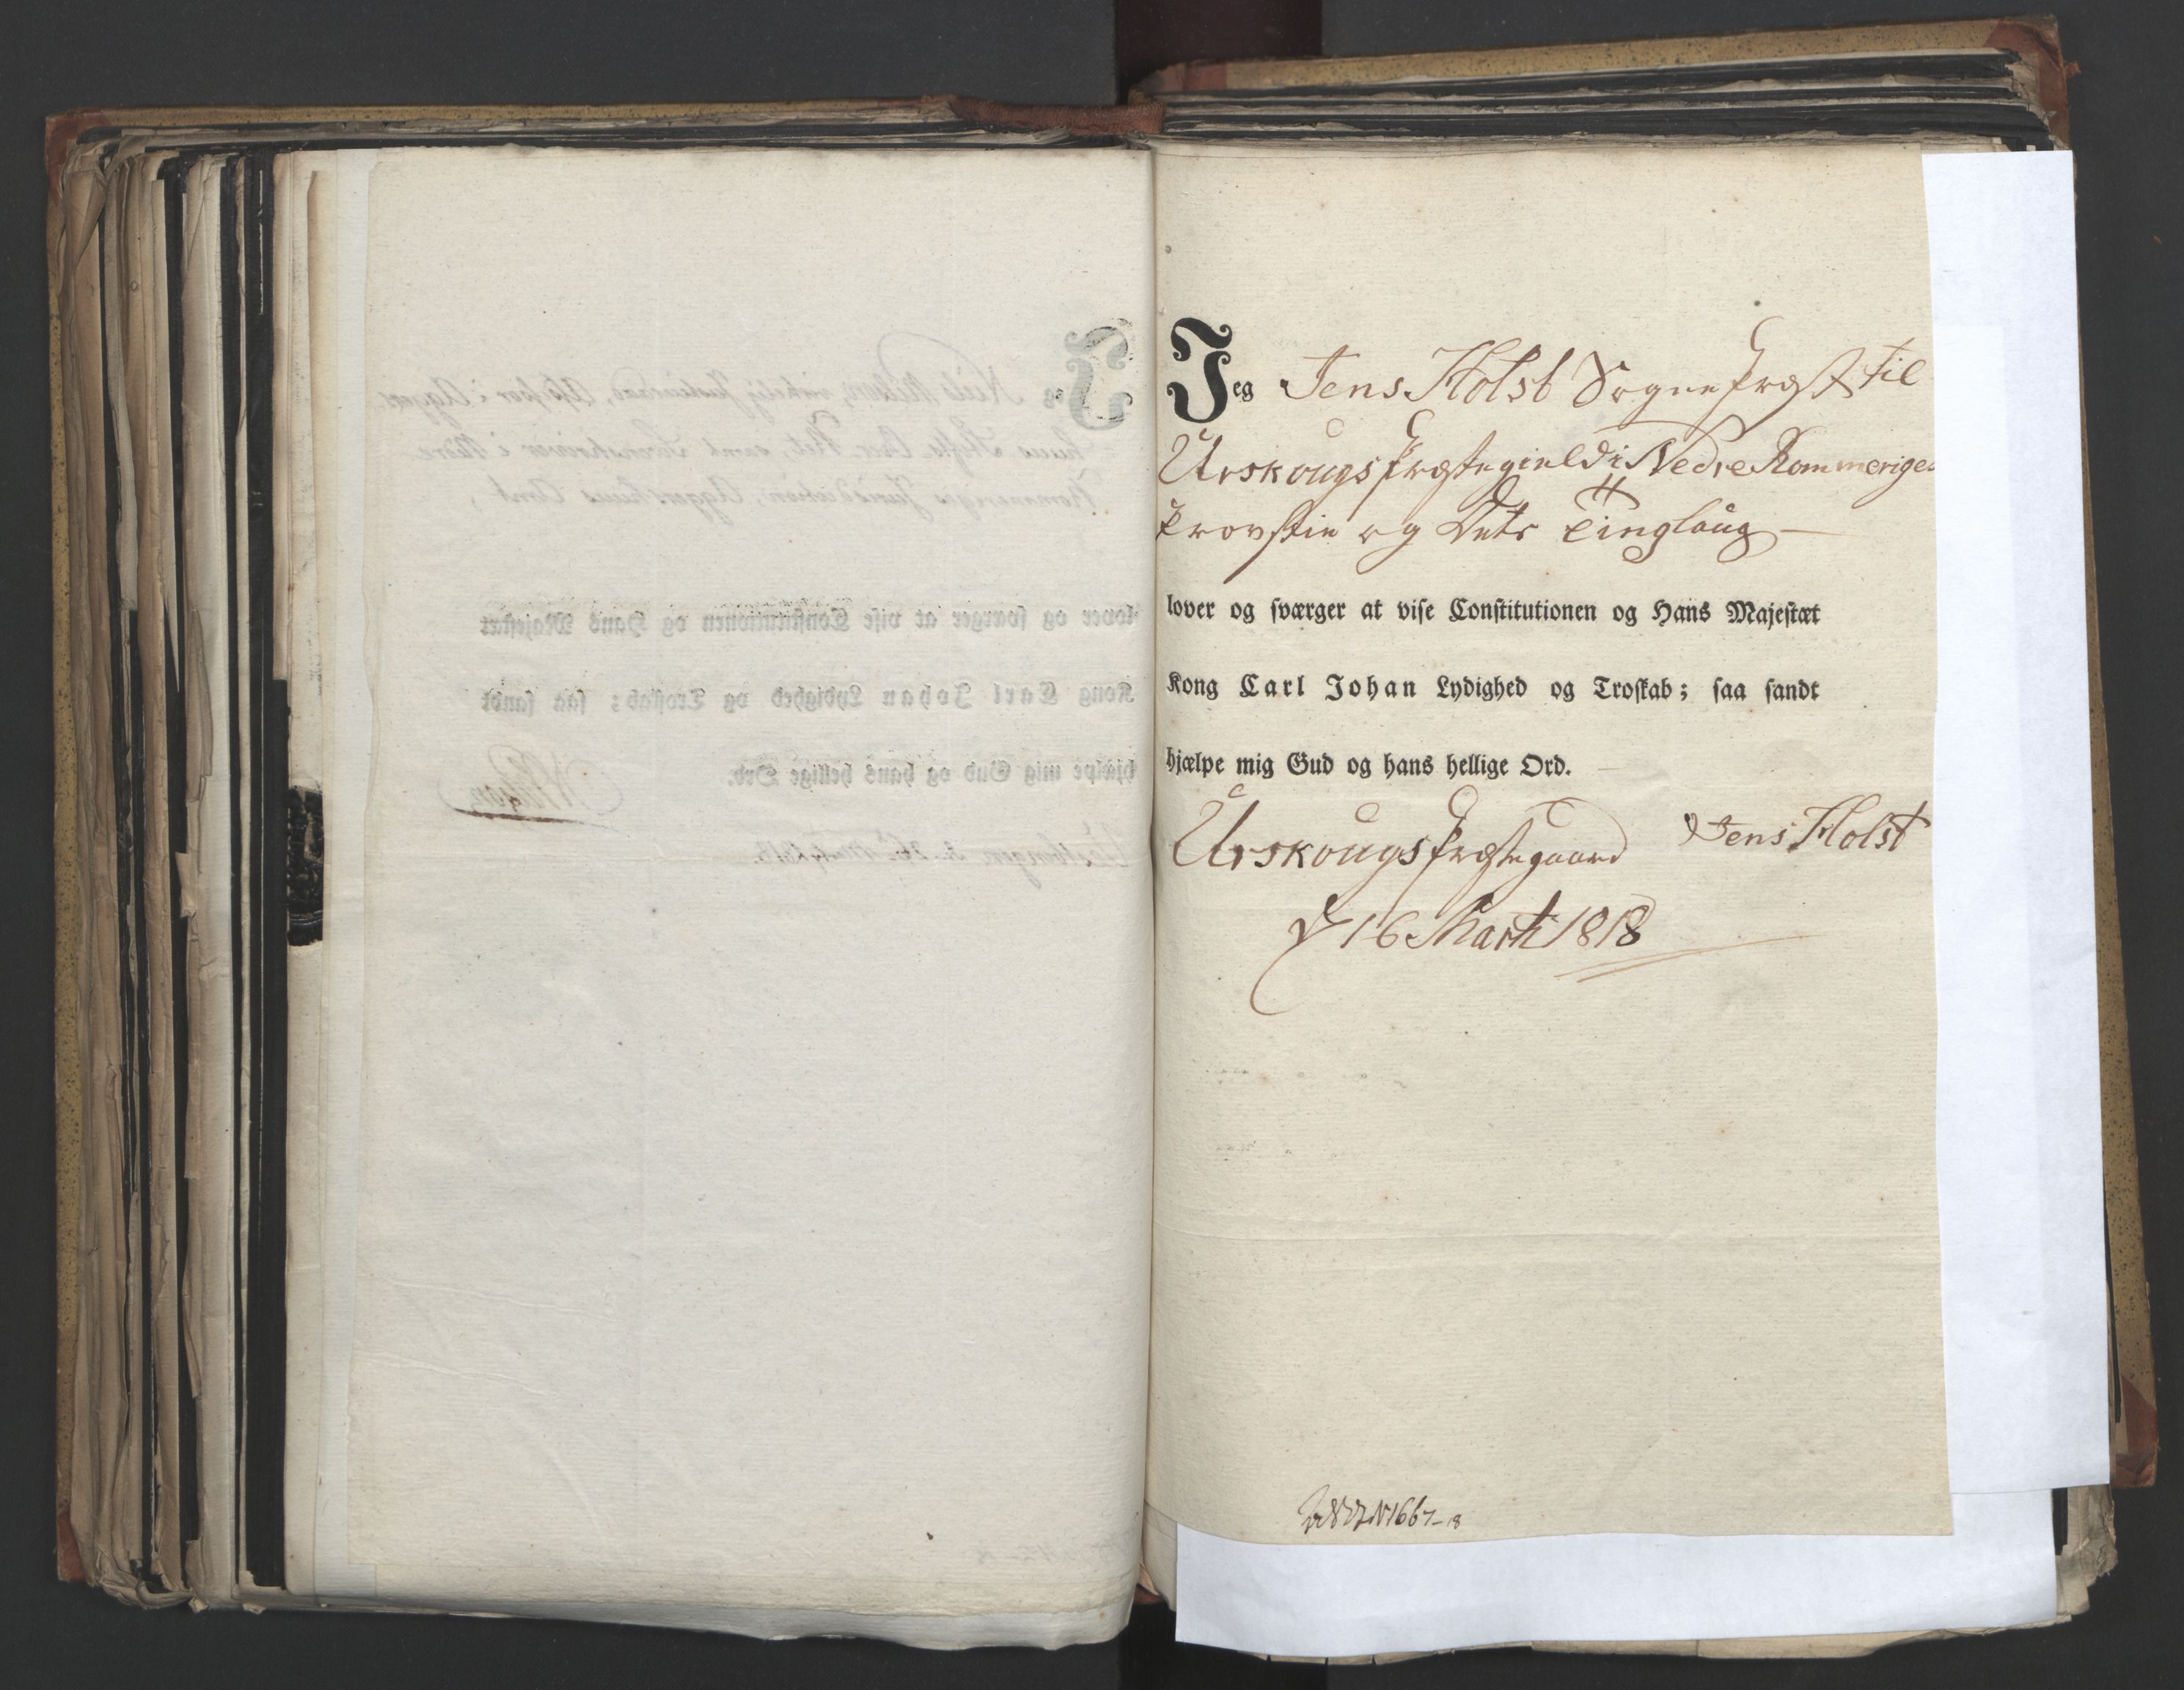 Jeg Jens Holst Sogne Præst til
Urskougs Præstegield i Nedre Rommeriges
Provstie og Dets Tinglaug
lover og sværger at vise Constitutionen og Hans Majestæt
Kong Carl Johan Lydighed og Troskab; saa sandt
hjælpe mig Gud og hans hellige Ord.
Urskougs Præstegaard Jens Holst
d 16 Marti 1818
1667-18